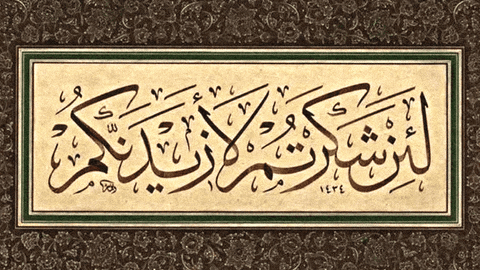 لئن شكرتم لأزيدنكم
١٤٣٤